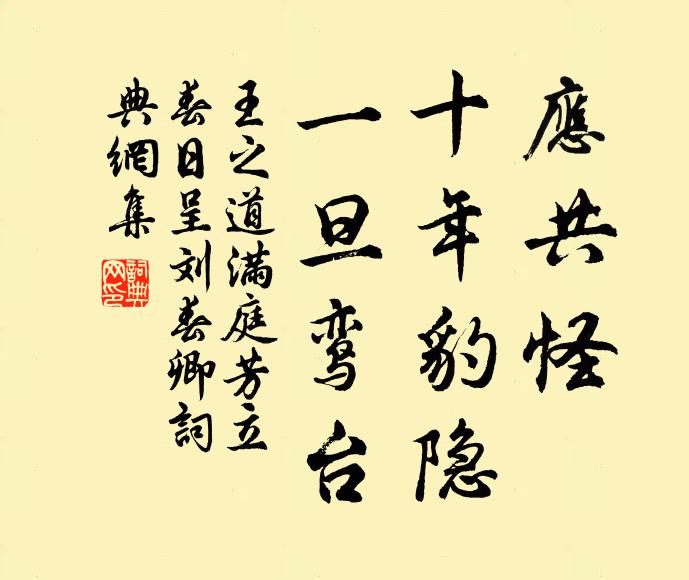 應共怪
十年豹隐
一旦鸾台
王之道满庭芳立
春日呈刘春卿詞
典網集
詞典网印